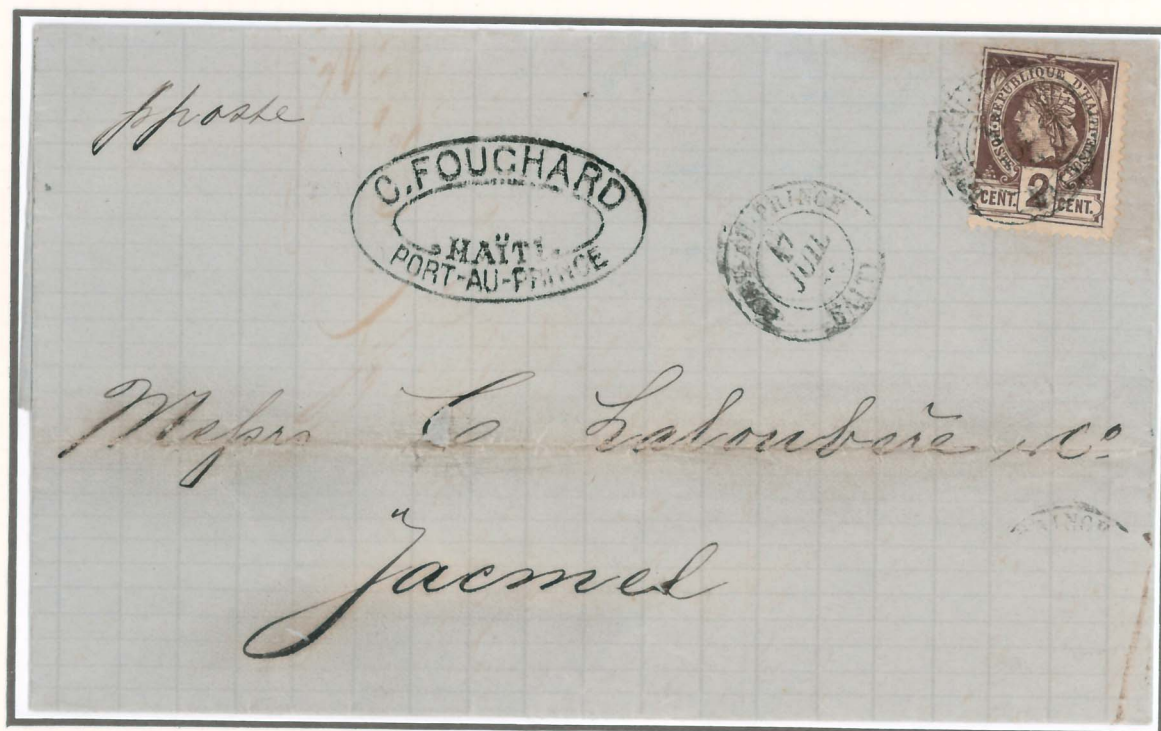 pposte
C. FOUCHARD
HAÏTI
PORT-AU-PRINCE
PORT-AU-PRINCE
17
JUIL
HAÏTI
POSTES REPUBLIQUE D'HAITI POSTES
CENT. 2 CENT.
Messrs C Laloubère & Co
Jacmel
PRINCE